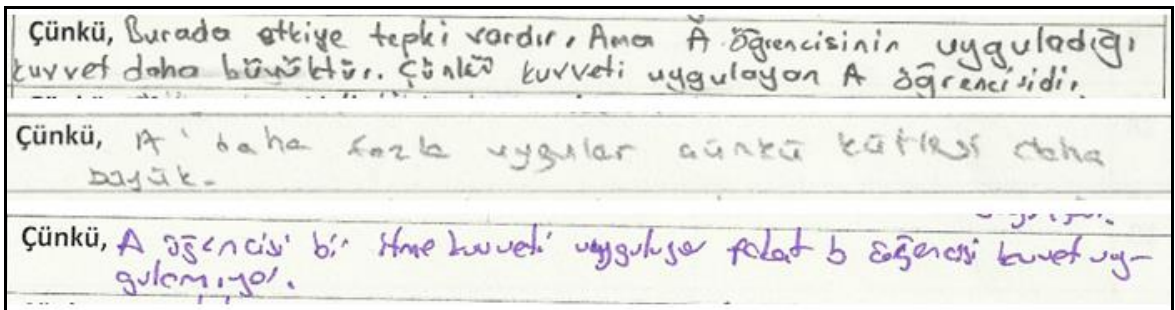 Çünkü, Burada etkiye tepki vardır, Ama A öğrencisinin uyguladığı
kuvvet daha büyüktür. Çünkü kuvveti uygulayan A öğrencisidir.
Çünkü, A daha fazla uygular çünkü kütlesi daha
büyük.
Çünkü, A öğencisi bir itme kuvveti uyguluyor fakat b öğencisi kuvet uy-
gulamıyor.